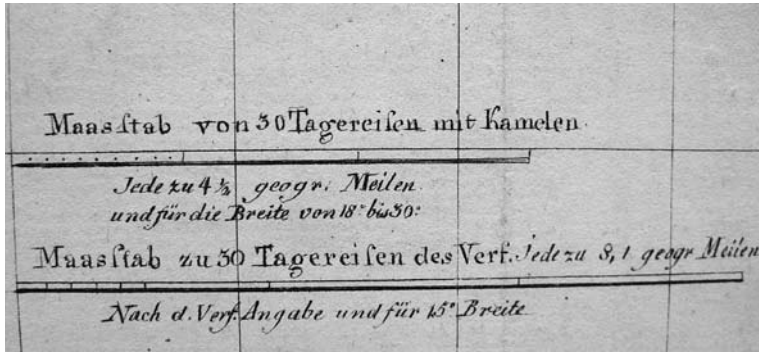 Maasſtab von 30 Tagereiſen mit Kamelen.
Jede zu 4 ½ geogr. Meilen
und für die Breite von 18° bis 30°
Maasſtab zu 30 Tagereiſen des Verf. Jede zu 8,1 geogr Meilen
Nach d. Verf. Angabe und für 15° Breite